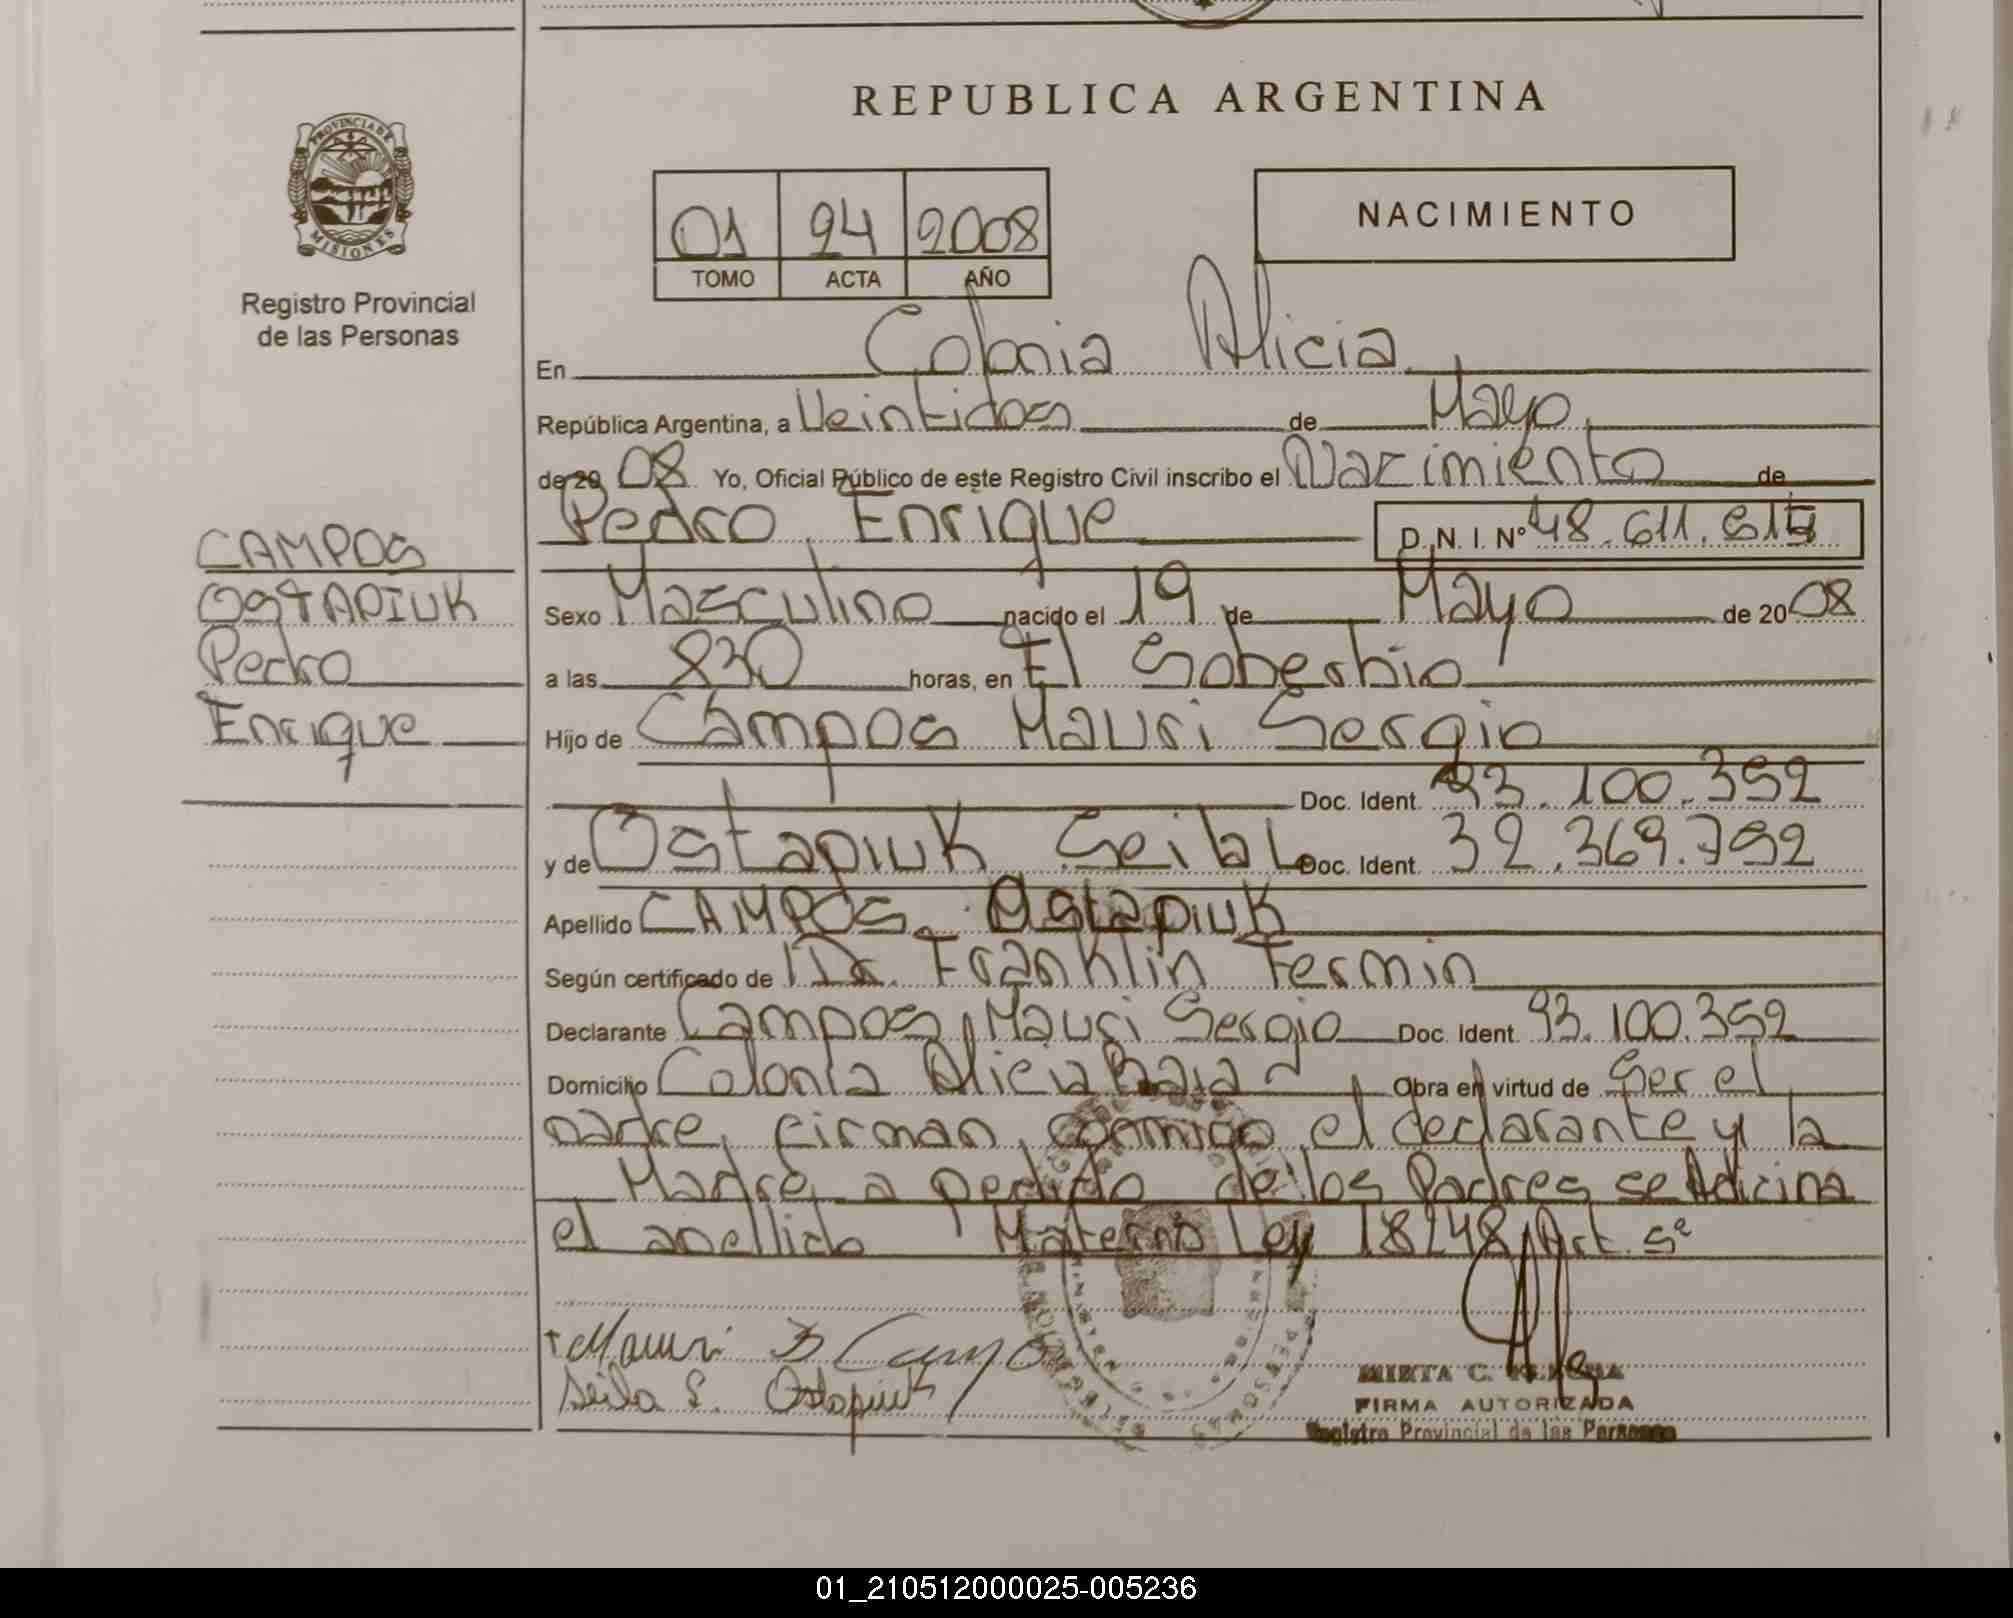 REPUBLICA ARGENTINA
PROVINCIA DE
MISIONES
Registro Provincial
de las Personas
01 24 2008
TOMO ACTA AÑO
NACIMIENTO
En Colonia Alicia
República Argentina, a Veintidos de Mayo
de 20 08 Yo, Oficial Público de este Registro Civil inscribo el Nacimiento de
Pedro Enrique D. N. I. Nº 48.611.
CAMPOS
OSTAPIUK
Pedro
Enrique
Sexo Masculino nacido el 19 de Mayo de 20 08
a las 830 horas, en El Soberbio
Hijo de Campos Mauri Sergio
Doc. Ident. 93.100.352
y de Ostapiuk Doc. Ident. 32.369.792
Apellido CAMPOS Ostapiuk
Según certificado de Dr. Franklin Fermin
Declarante Campos Mauri Sergio Doc. Ident. 93.100.352
Domicilio Colonia Alicia Baja Obra en virtud de Ser el
padre, firman, conmigo el declarante y la
Madre, a pedido de los Padres se Adiciona
el apellido Materno Ley 18248 Art. 5º
Mauri S Campo
Seila S. Ostapiuk
MIRTA C.
FIRMA AUTORIZADA
Registro Provincial de las Personas
01_210512000025-005236